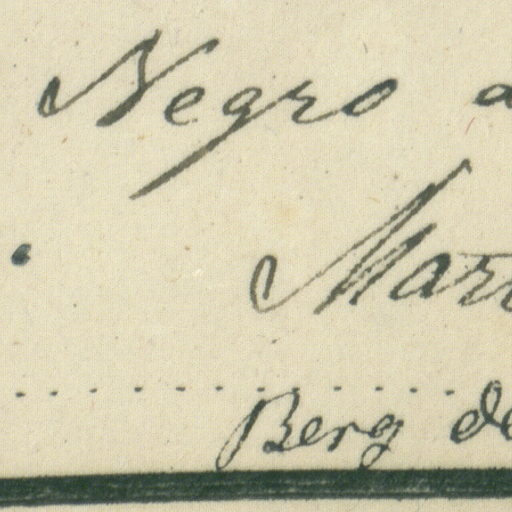 Negro a
Mar
Berg de